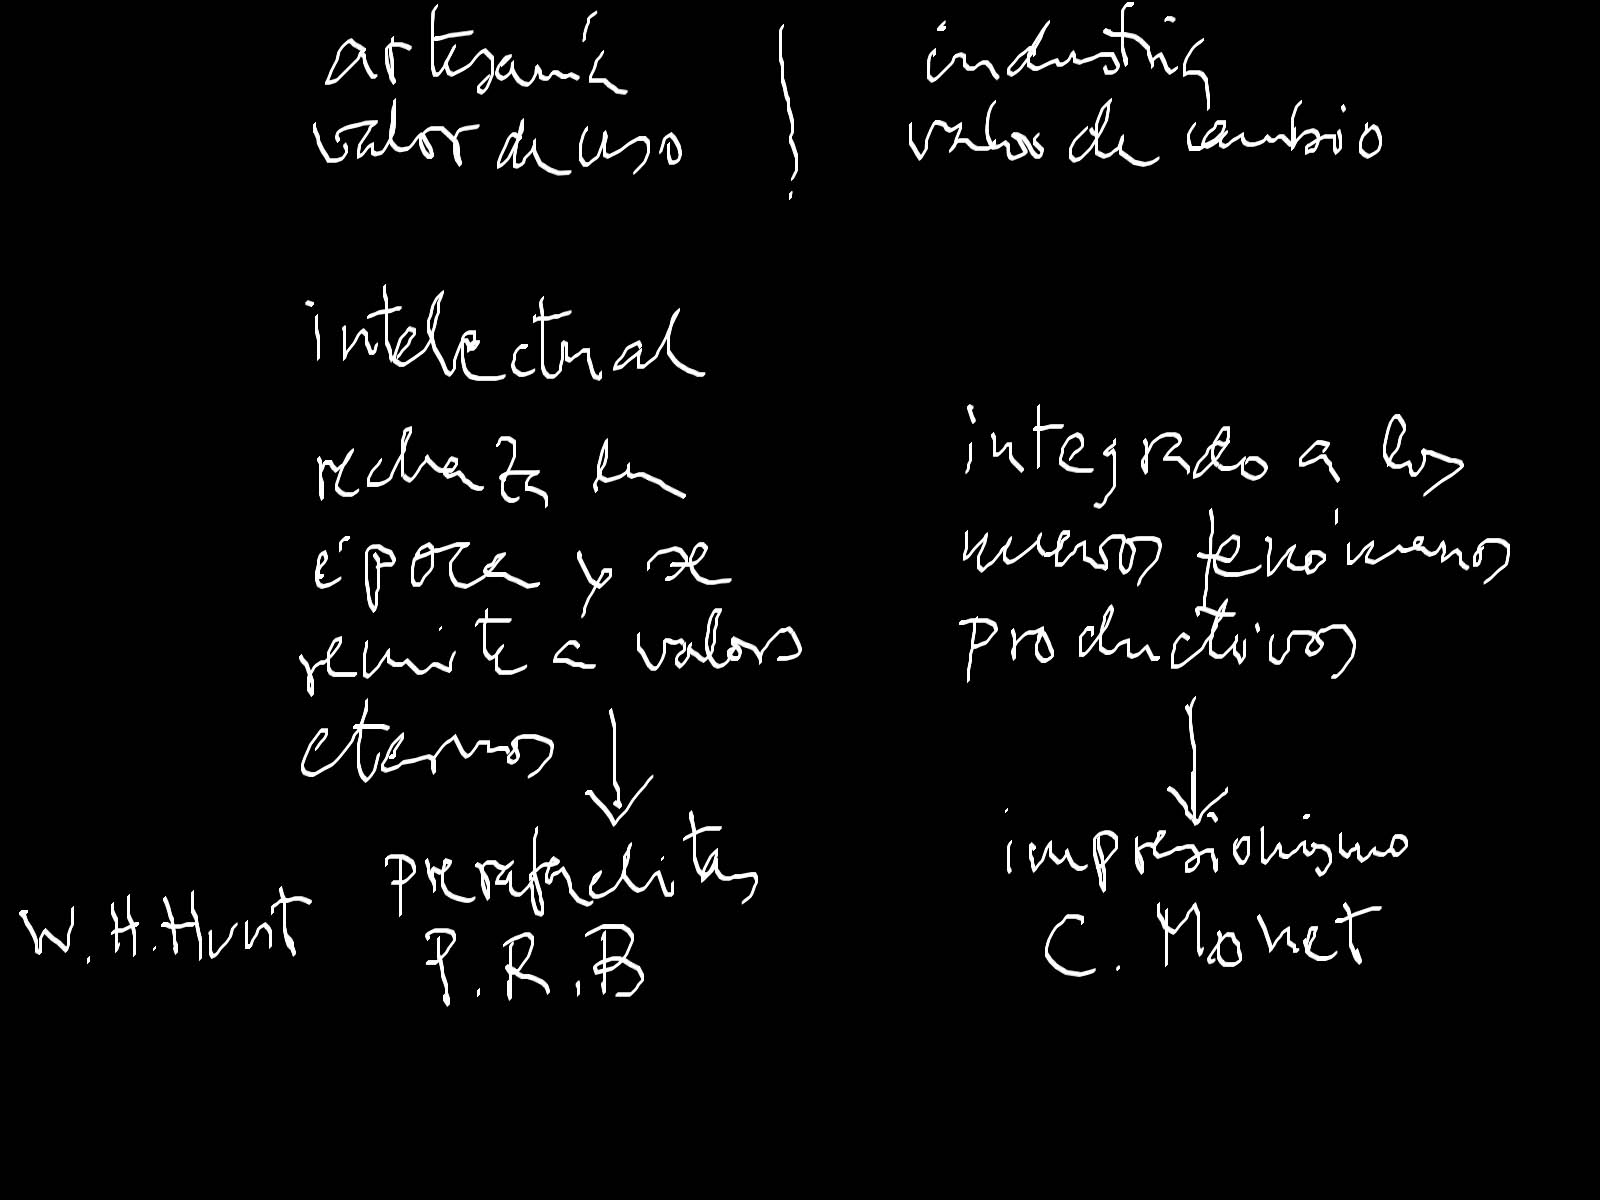 artesanía
valor de uso
industria
valor de cambio
intelectual
rechaza su
época y se
remite a valores
eternos
prerafaelitas
W.H.Hunt
P.R.B
integrado a los
nuevos fenómenos
productivos
impresionismo
C. Monet